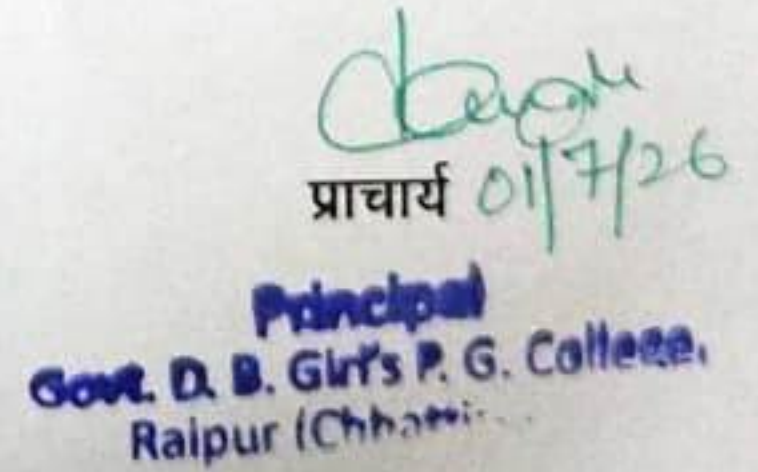 प्राचार्य 01/7/26
Principal
Govt. D. B. Girl's P. G. College,
Raipur